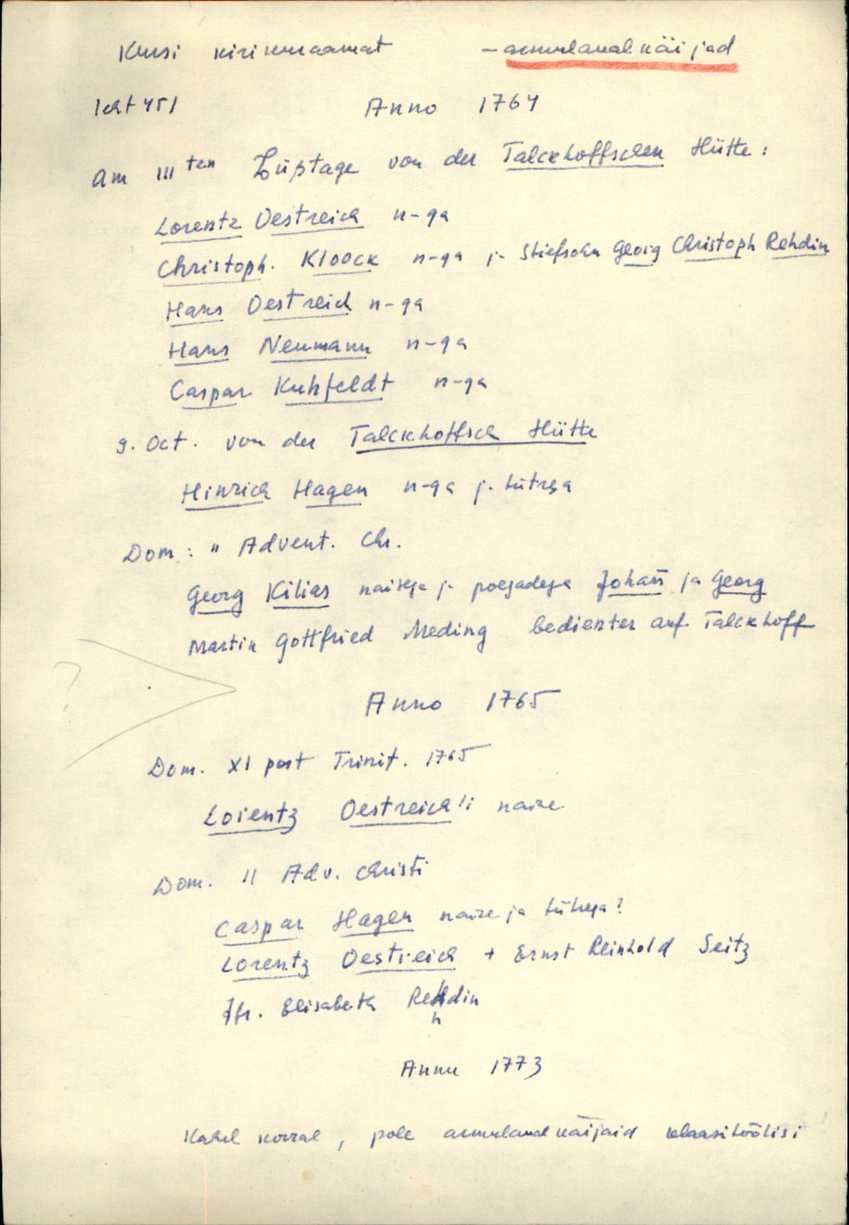 Kursi kirikuraamat – armulaual käijad
leht 451 Anno 1764
Am III ten Bußtage von der Talckhoffschen Hütte:
Lorentz Oestreich n-ga
Christoph. Kloock n-ga j. Stiefsohn Georg Christoph Rehdin
Hans Oestreich n-ga
Hans Neumann n-ga
Caspar Kuhfeldt n-ga
9. Oct. von der Talckhoffsch Hütte
Hinrich Hagen n-ga j. tütrega
Dom: " Advent. Chr.
Georg Kilias naisega j. poegadega Johañ ja Georg
Martin Gottfried Meding bedienter auf Talckhoff
?
Anno 1765
Dom. XI post Trinit. 1765
Lorentz Oestreich'i naine
Dom. II Adv. Christi
Caspar Hagen naise ja tütrega?
Lorentz Oestreich + Ernst Reinhold Seitz
Jfr. Elisabeth Rehdin
h
Anno 1773
Kahel korral, pole armulaual käijaid klaasitöölisi